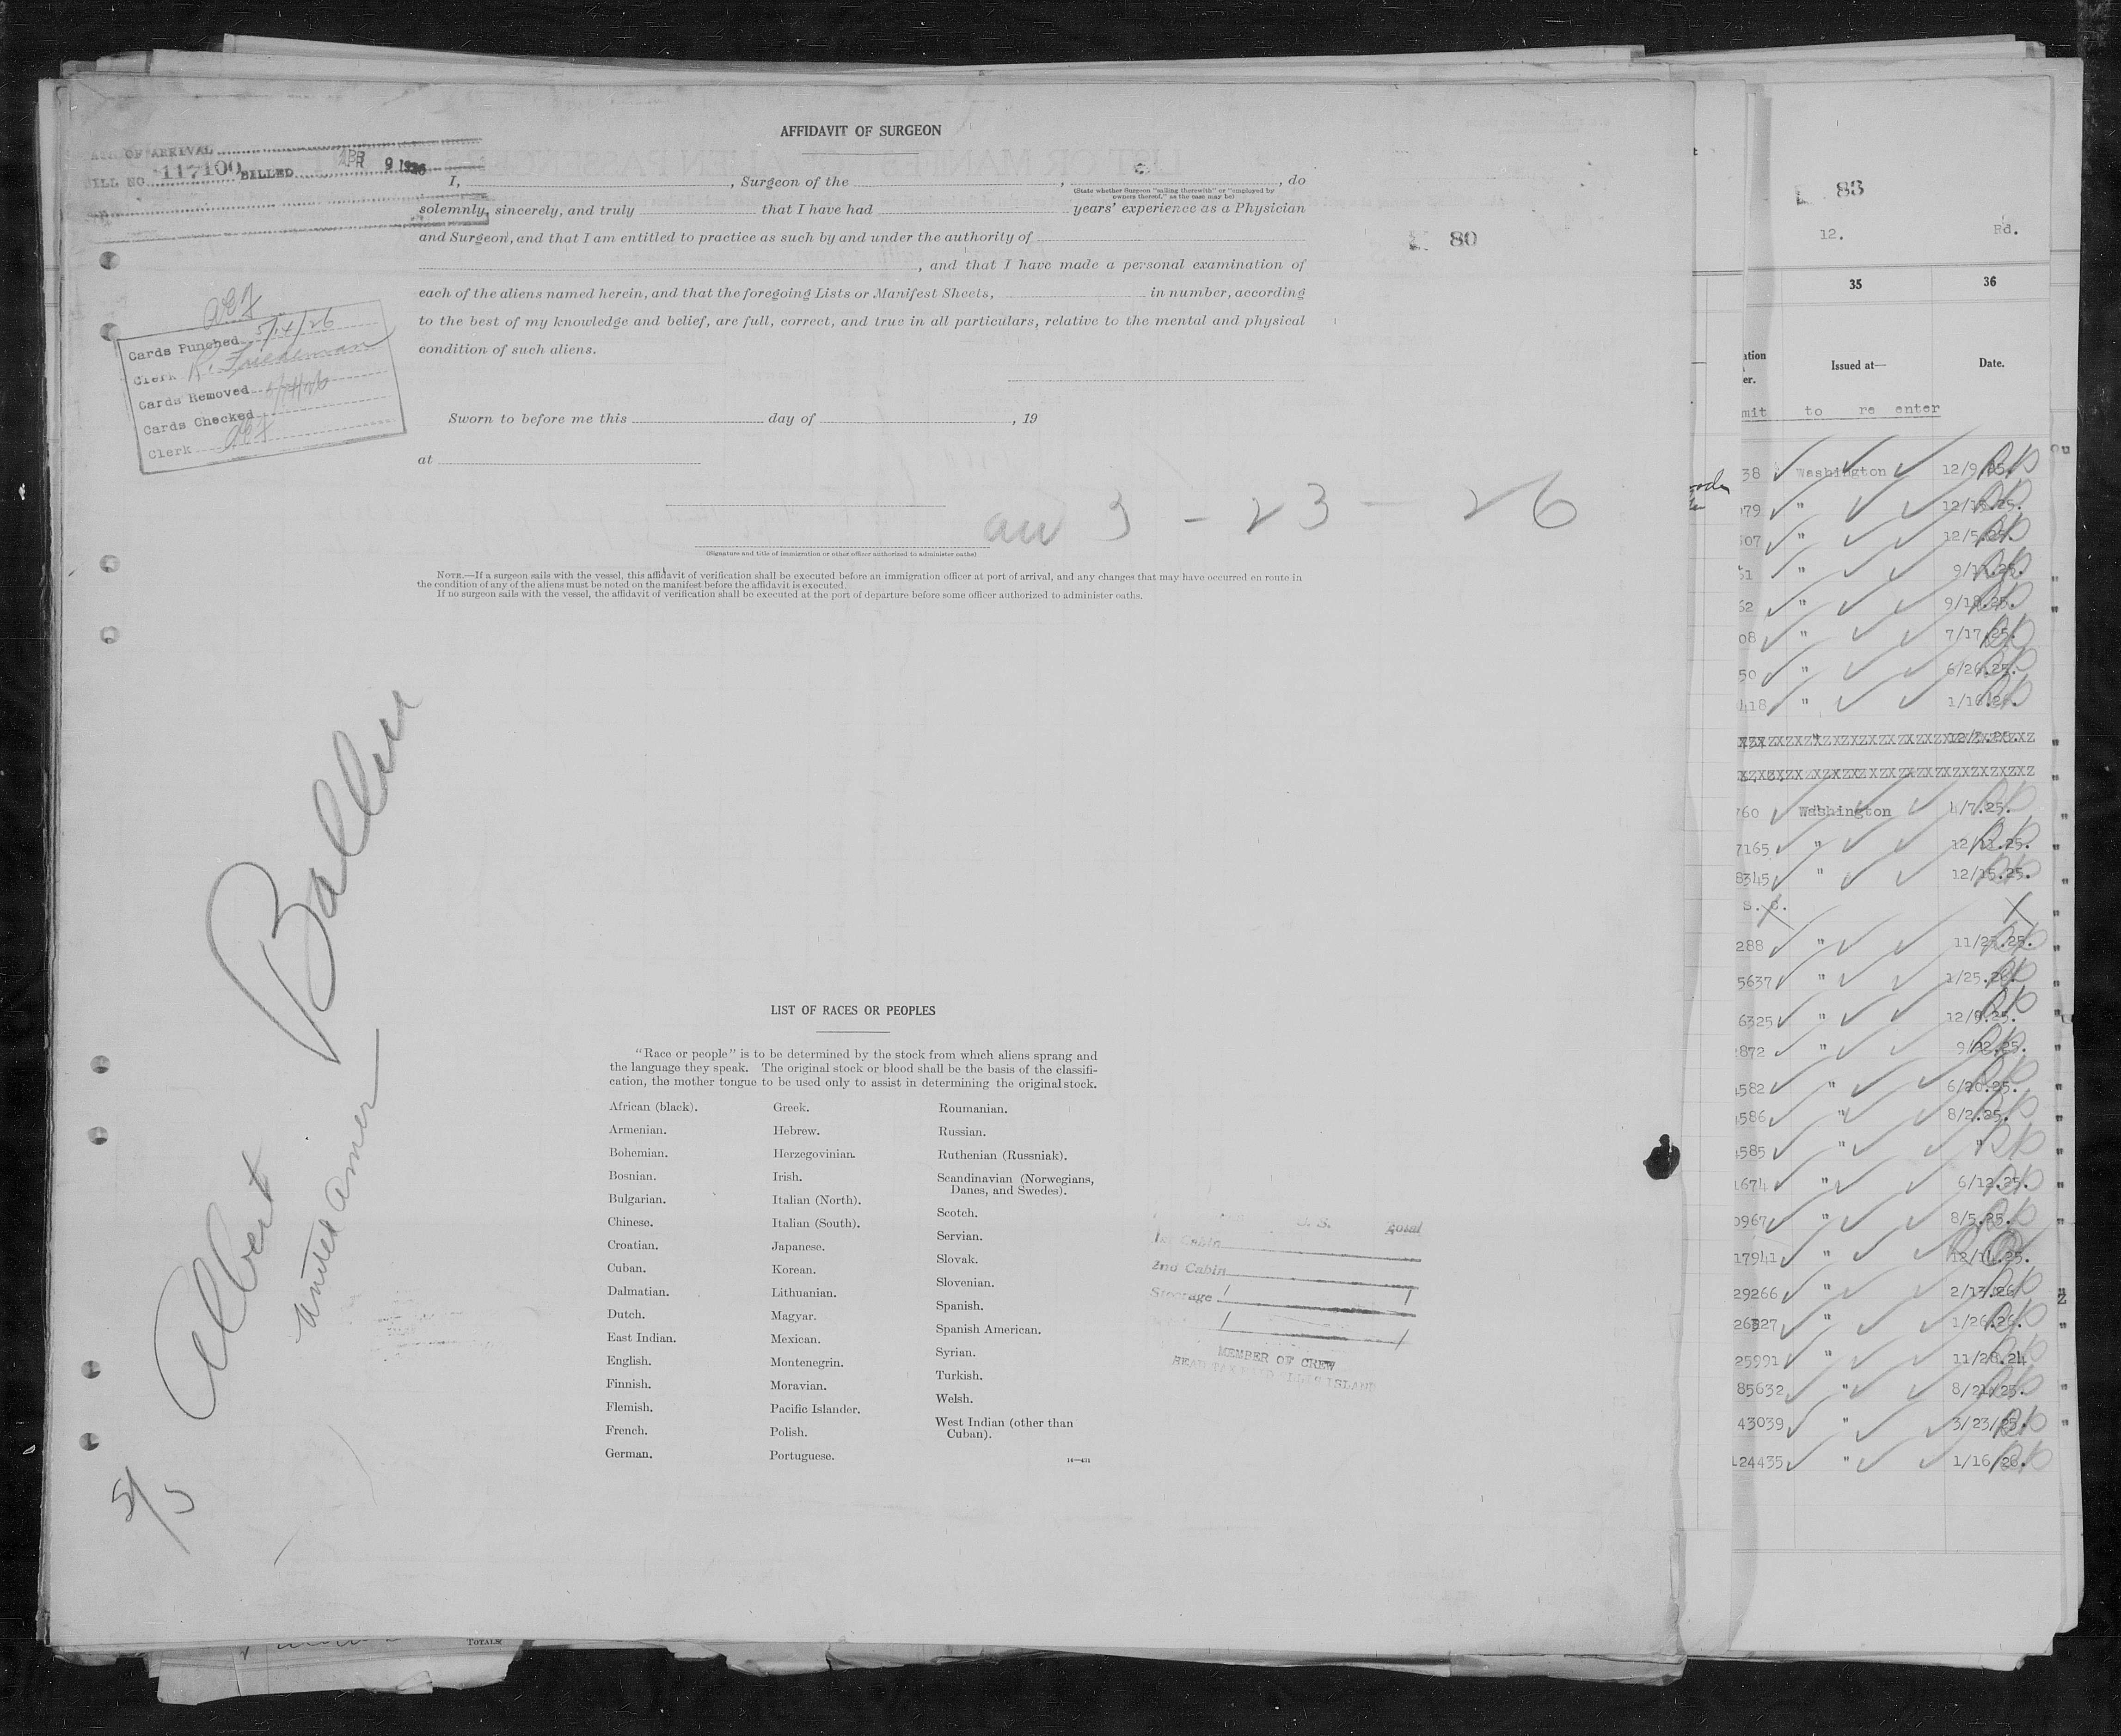 AFFIDAVIT OF SURGEON
OF ARRIVAL
BILL NO. 117100 BILLED APR 9 1926
I, , Surgeon of the , , do
(State whether Surgeon "sailing therewith" or "employed by
owners thereof," as the case may be)
solemnly, sincerely, and truly that I have had years' experience as a Physician
and Surgeon, and that I am entitled to practice as such by and under the authority of
, and that I have made a personal examination of
each of the aliens named herein, and that the foregoing Lists or Manifest Sheets, in number, according
to the best of my knowledge and belief, are full, correct, and true in all particulars, relative to the mental and physical
condition of such aliens.
Sworn to before me this day of , 19
at
80
Cards Punched 5/14/26
Clerk R. Friedeman
Cards Removed
Cards Checked
Clerk
3 - 23 - 26
(Signature and title of immigration or other officer authorized to administer oaths)
NOTE.—If a surgeon sails with the vessel, this affidavit of verification shall be executed before an immigration officer at port of arrival, and any changes that may have occurred en route in
the condition of any of the aliens must be noted on the manifest before the affidavit is executed.
If no surgeon sails with the vessel, the affidavit of verification shall be executed at the port of departure before some officer authorized to administer oaths.
Albert Ballin
United Amer
5/5
LIST OF RACES OR PEOPLES
"Race or people" is to be determined by the stock from which aliens sprang and
the language they speak. The original stock or blood shall be the basis of the classifi-
cation, the mother tongue to be used only to assist in determining the original stock.
African (black).
Armenian.
Bohemian.
Bosnian.
Bulgarian.
Chinese.
Croatian.
Cuban.
Dalmatian.
Dutch.
East Indian.
English.
Finnish.
Flemish.
French.
German.
Greek.
Hebrew.
Herzegovinian.
Irish.
Italian (North).
Italian (South).
Japanese.
Korean.
Lithuanian.
Magyar.
Mexican.
Montenegrin.
Moravian.
Pacific Islander.
Polish.
Portuguese.
Roumanian.
Russian.
Ruthenian (Russniak).
Scandinavian (Norwegians,
Danes, and Swedes).
Scotch.
Servian.
Slovak.
Slovenian.
Spanish.
Spanish American.
Syrian.
Turkish.
Welsh.
West Indian (other than
Cuban).
14—431
U. S. Total
1st Cabin
2nd Cabin
Steerage
MEMBER OF CREW
HEAD TAX PAID ELLIS ISLAND
TOTALS
83
12. Rd.
35 36
Issued at— Date.
mit to re enter
38 Washington 12/9.25.
79 " 12/15.25.
07 " 12/5.25.
51 " 9/11.25.
62 " 9/18.25.
08 " 7/17.25.
50 " 6/26.25.
418 " 1/16.26.
760 Washington 4/7.25.
7165 " 12/11.25.
8345 " 12/15.25.
S. C.
288 " 11/23.25.
5637 " 1/25.26.
6325 " 12/9.25.
872 " 9/22.25.
582 " 6/26.25.
586 " 8/2.25.
585 " "
1674 " 6/12.25.
0967 " 8/5.25.
17941 " 12/14.25.
29266 " 2/13.26
26327 " 1/26.26.
25991 " 11/28.24
85632 " 8/24/25.
43039 " 3/23/25.
124435 " 1/16/26.